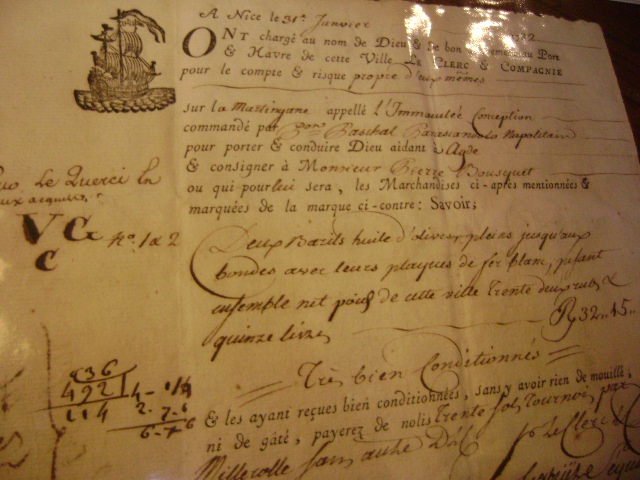 A Nice le 31e Janvier
ONT chargé au nom de Dieu & de bon au Port
& Havre de cette Ville, LE CLERC & COMPAGNIE
pour le compte & risque propre d'eux mêmes
sur la Martingane appellé l'Immaculée Conception
commandé par Pon Paschal Napolitain
pour porter & conduire Dieu aidant à Agde
& consigner à Monsieur Pierre Bousquet
ou qui pour lui sera, les Marchandises ci-après mentionnées &
marquées de la marque ci-contre: Savoir;
Le Querci En
VG
C
No. 1 a 2
Deux Barils huile d'olives pleins jusqu'aux
bondes avec leurs plaques de fer blanc, pesant
ensemble net poids de cette ville trente deux rubs &
quinze livres
R 32..15..
Très bien Conditionnés
636
492
114
4-
2. 7-6
6-
& les ayant reçues bien conditionnées, sans y avoir rien de mouillé,
ni de gâté, payerez de nolis trente sols Tournois par
Millerolle sans autre